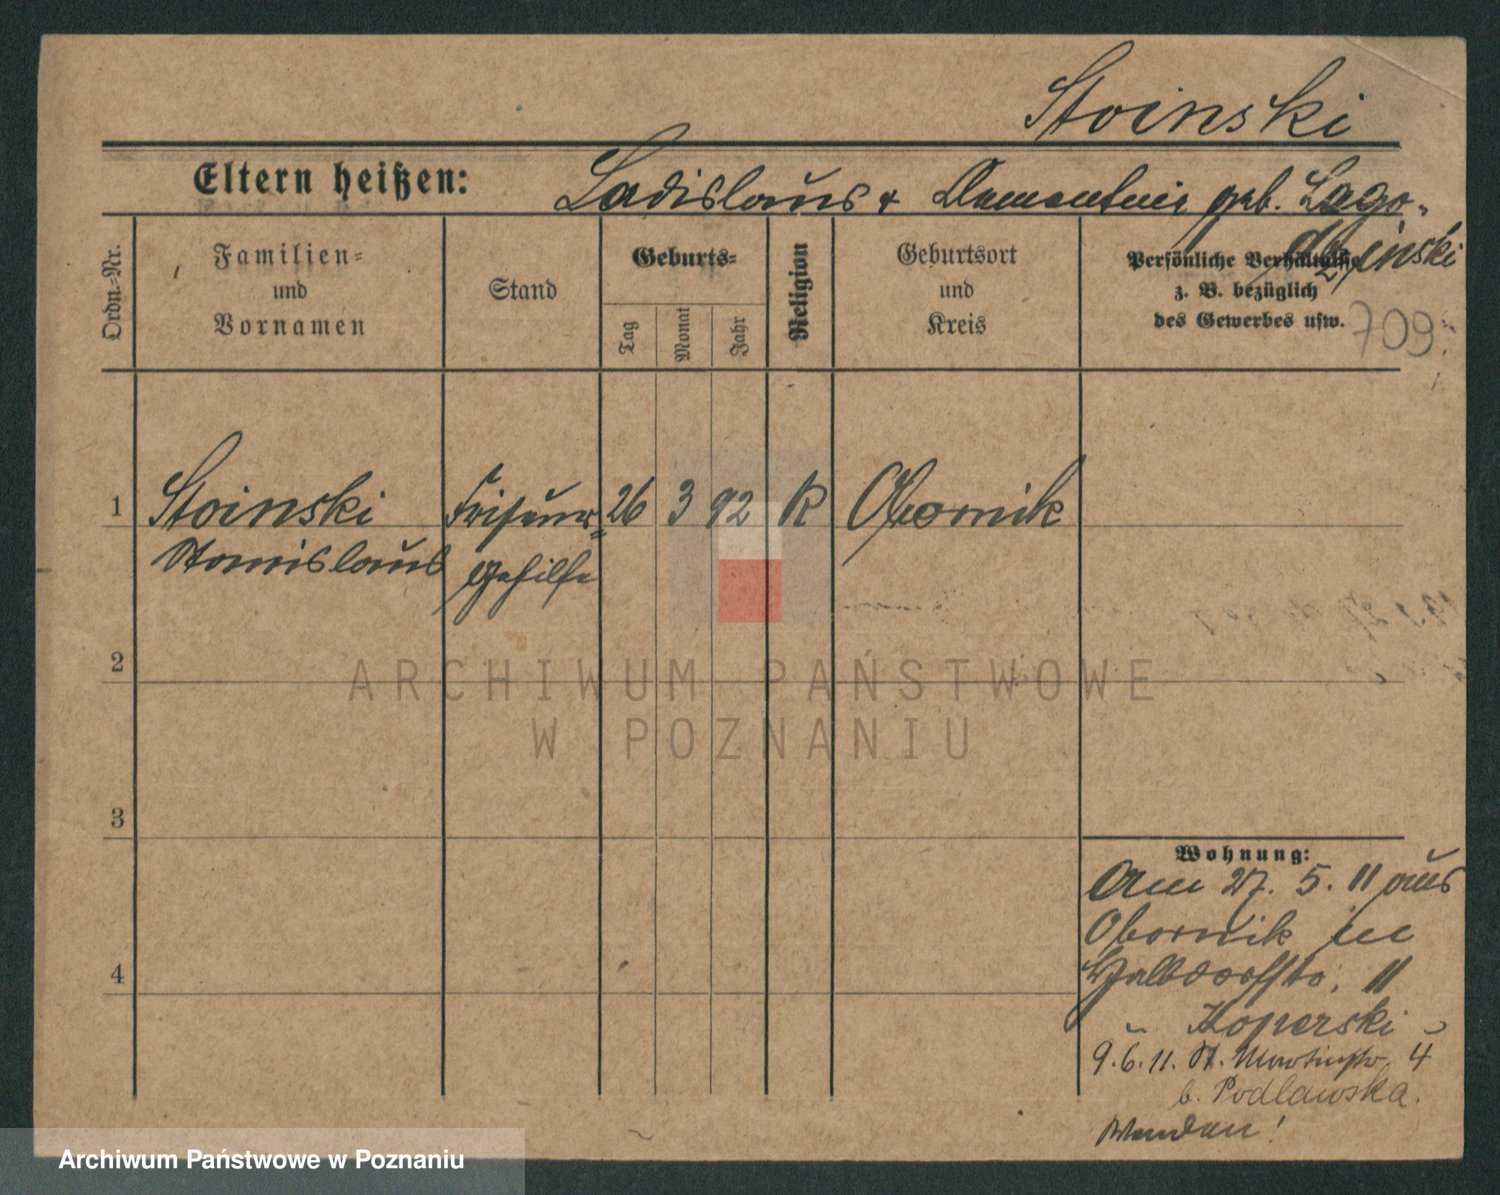 Stoinski
Eltern heißen: Ladislaus & geb. Lago-
dzinski
Ordn.-Nr.
Familien-
und
Vornamen
Stand
Geburts-
Tag
Monat
Jahr
Religion
Geburtsort
und
Kreis
Persönliche Verhältnisse
z. B. bezüglich
des Gewerbes usw.
709
1 Stoinski Friseur- 26 3 92 K Obornik
Stanislaus gehilfe
2
ARCHIWUM PAŃSTWOWE
W POZNANIU
3
Wohnung:
Am 27. 5. 11 aus
Obornik in
4 Halbdorfstr. 11
Koperski
9.6.11. St. Martinstr. 4
b. Podlawska.
Wenden!
Archiwum Państwowe w Poznaniu